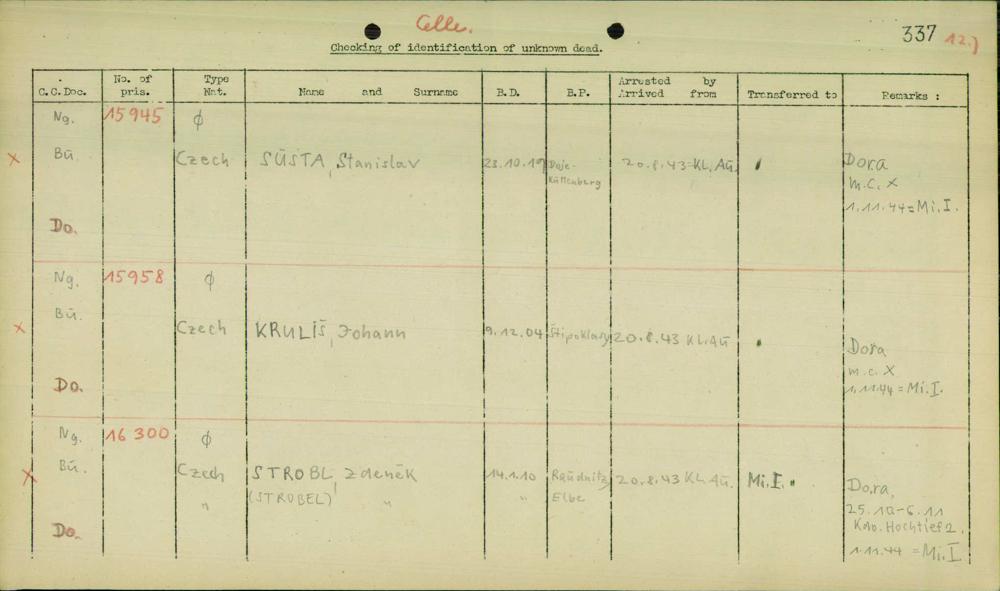 Celle.
337 12.)
Checking of identification of unknown dead.
C.C.Doc. No. of pris. Type Nat. Name and Surname B.D. B.P. Arrested by Arrived from Transferred to Remarks :
Ng. 15945 ϕ
x Bū. Czech SŪSTA, Stanislav 23.10.19 Kuttenberg 20.8.43 = KL. Au. Dora
m.c. X
1.11.44 = Mi.I.
Do.
Ng. 15958 ϕ
Bū.
x Czech KRULIŠ, Johann 9.12.04 Štipoklasy 20.8.43 KL.Aū Dora
m.c. X
Do. 1.11.44 = Mi.I.
Ng. 16300 ϕ
x Bū. Czech STROBL, Zdeněk 14.1.10 Raudnitz, 20.8.43 KL.Au. Mi.I. Dora,
" (STROBEL) " " Elbe 25.10-6.11
Do. Kdo. Hochtief 2.
1.11.44 = Mi.I